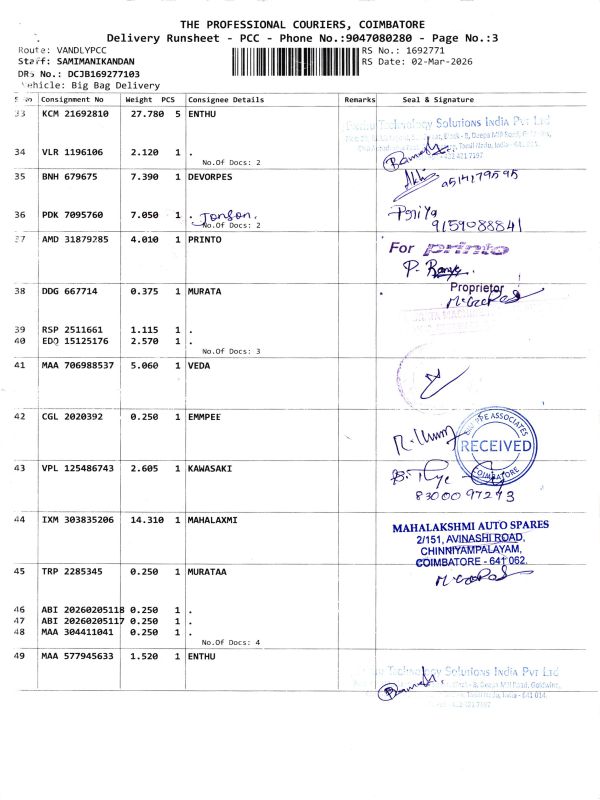 THE PROFESSIONAL COURIERS, COIMBATORE
Delivery Runsheet - PCC - Phone No.:9047080280 - Page No.:3
Route: VANDLYPCC
RS No.: 1692771
Staff: SAMIMANIKANDAN
RS Date: 02-Mar-2026
DRS No.: DCJB169277103
Vehicle: Big Bag Delivery
S No Consignment No Weight PCS Consignee Details Remarks Seal & Signature
33 KCM 21692810 27.780 5 ENTHU
Technology Solutions India Pvt Ltd
34 VLR 1196106 2.120 1 .
No.Of Docs: 2
35 BNH 679675 7.390 1 DEVORPES
9514179595
36 PDK 7095760 7.050 1 . Jonson.
No.Of Docs: 2
Priya
9159088841
37 AMD 31879285 4.010 1 PRINTO
For printo
Proprietor
38 DDG 667714 0.375 1 MURATA
39 RSP 2511661 1.115 1 .
40 EDQ 15125176 2.570 1 .
No.Of Docs: 3
41 MAA 706988537 5.060 1 VEDA
42 CGL 2020392 0.250 1 EMMPEE
ASSOCIATES
RECEIVED
COIMBATORE
43 VPL 125486743 2.605 1 KAWASAKI
8300097243
44 IXM 303835206 14.310 1 MAHALAXMI
MAHALAKSHMI AUTO SPARES
2/151, AVINASHI ROAD,
CHINNIYAMPALAYAM,
COIMBATORE - 641 062.
45 TRP 2285345 0.250 1 MURATAA
46 ABI 20260205118 0.250 1 .
47 ABI 20260205117 0.250 1 .
48 MAA 304411041 0.250 1 .
No.Of Docs: 4
49 MAA 577945633 1.520 1 ENTHU
Technology Solutions India Pvt Ltd